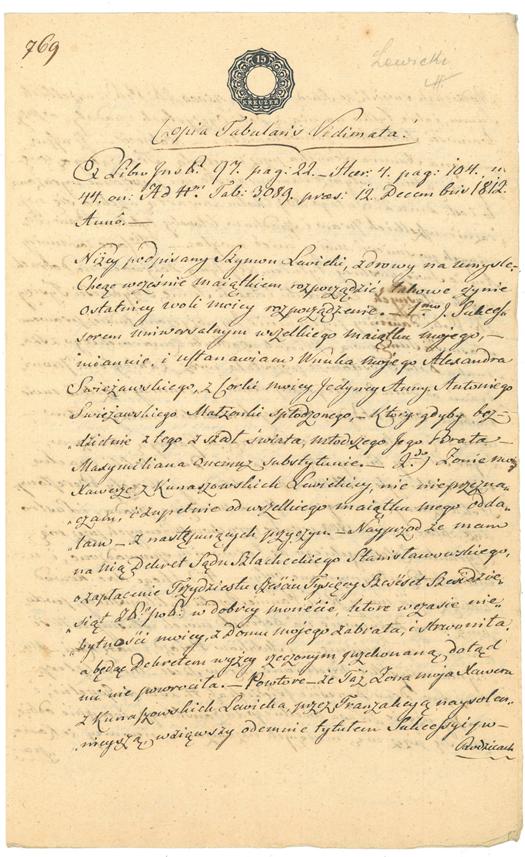 769
Lewicki
15
KREUZER
Copia Tabularis Vidimata.
Ex Libro Instr. 97. pag: 22. — Haer: 4. pag: 104. n.
44. on: Ad Nrum Tab: 3089. praes: 12. Decembris 1812.
Anno. —
Niżey podpisany Szymon Lewicki, zdrowy na umyśle
Chcąc wcześnie maiątkiem rozporządzić, takowe czynię
Ostatniey woli moiey rozporządzenie. — 1mo J. Sukces-
sorem uniwersalnym wszelkiego maiątku mojego, —
imiannie, i ustanawiam Wnuka mojego Alexandra
Swieżawskiego, z Corki moiey Jedyney Anny, Antoniego
Swieżawskiego Małżonki spłodzonego, — Który gdyby bez-
dzietnie z tego zszedł świata, młodszego Jego Brata —
Maxymiliana Onemuż substytuuię. — 2do J Żonie moiey
Xawerze z Kunaszowskich Lewickiey, nic nieprzezna-
czam, i zupełnie od wszelkiego maiątku mego odda-
lam — z następuiących przyczyn. — Nayprzod że mam
na nią Dekret Sądu Szlacheckiego Stanisławowskiego,
o zapłacenie Trzydziestu Sześciu Tysięcy Sześćset Sześdzie-
siąt Złr. pol: w dobrey monecie, które w czasie nie-
bytności moiey, z domu mojego zabrała, i strwoniła,
a będąc Dekretem wyżey rzeczonym przekonaną, dotąd
mi nie powrociła. — Powtore — że Taż Żona moja Xawera
z Kunaszowskich Lewicka, przez Tranzakcyą naysolen-
nieyszą, wziąwszy odemnie tytułem Sukcessyi po —
Rodzicach